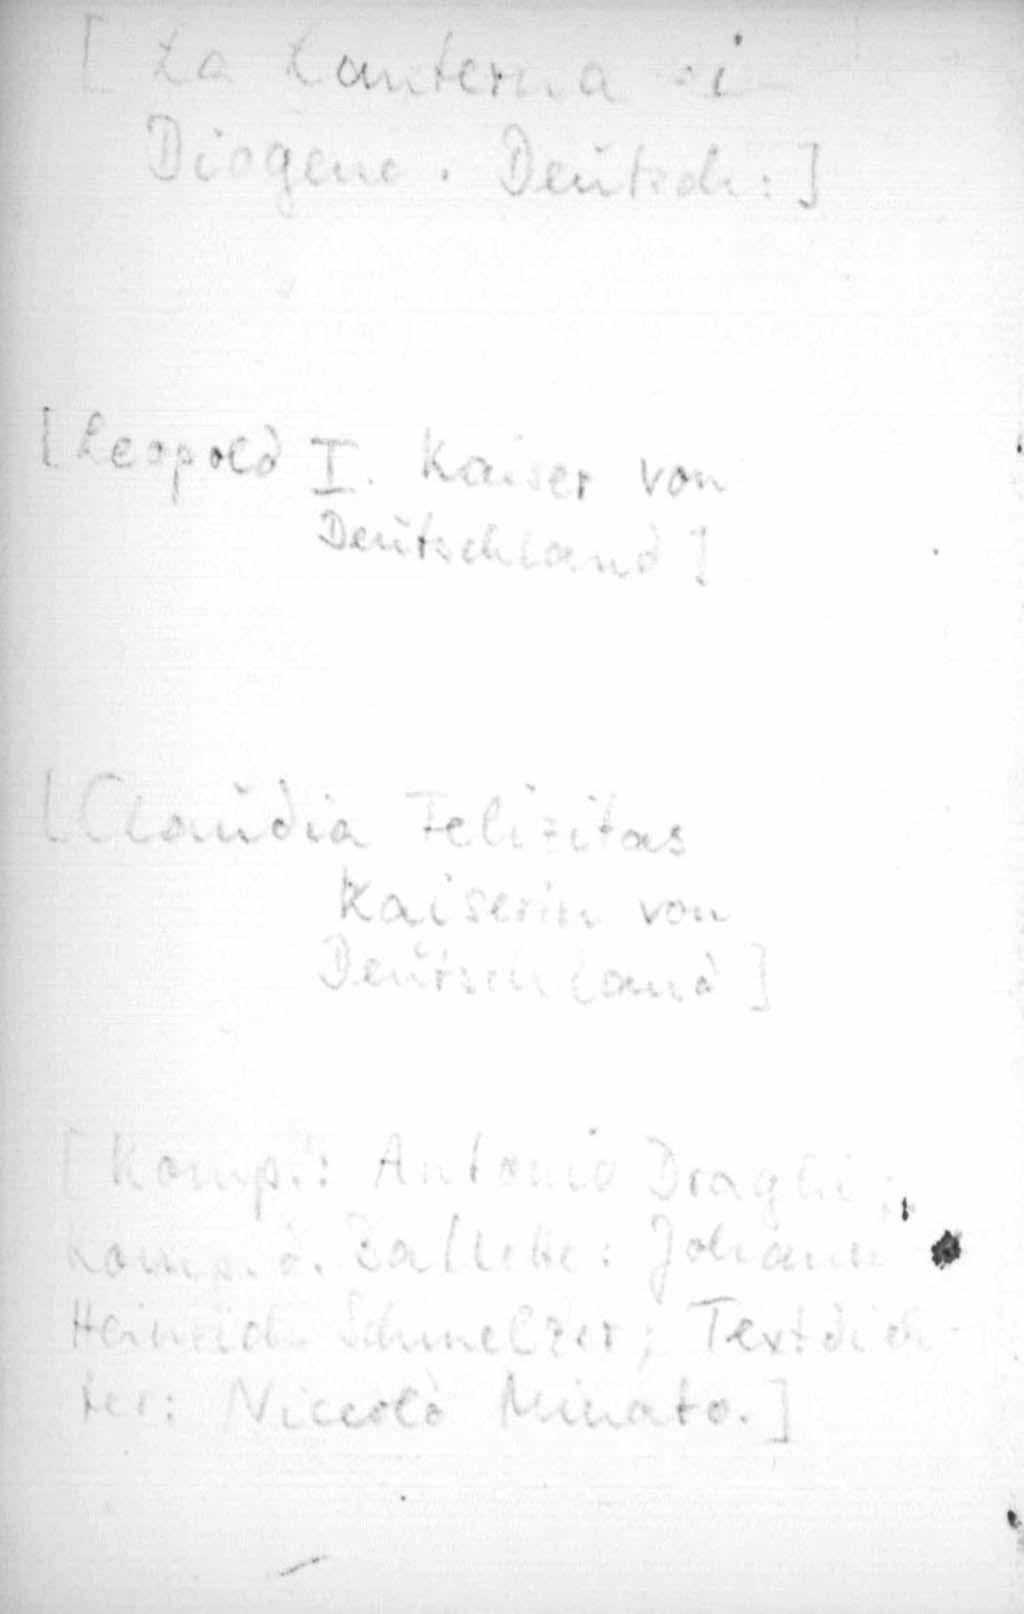 [ La Lanterna di
Diogene. Deutsch: ]
[ Leopold I. Kaiser von
Deutschland ]
[ Claudia Felizitas
Kaiserin von
Deutschland ]
[ Komp.: Antonio Draghi;
Komp. d. Ballette: Johann
Heinrich Schmelzer; Textdich-
ter: Niccolò Minato. ]